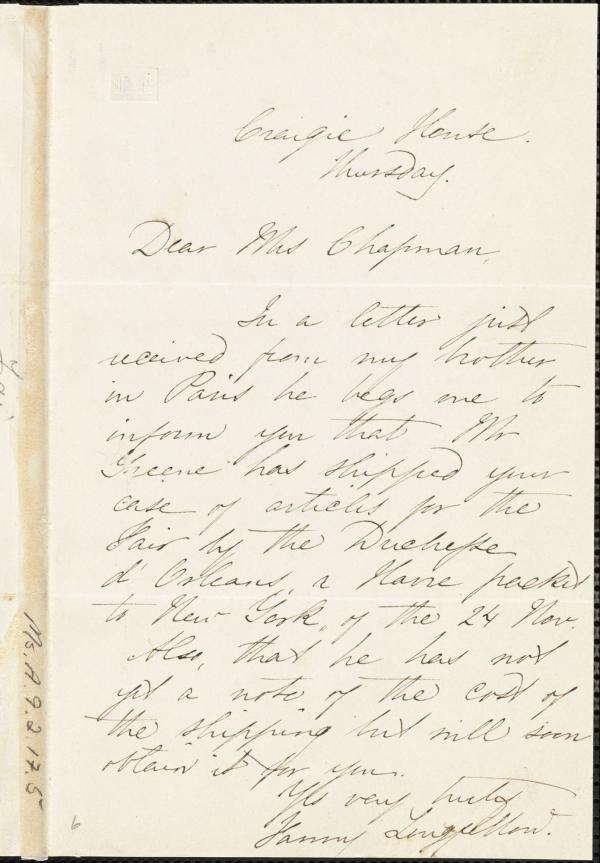 Craigie House.
Thursday.
Dear Mrs Chapman,
In a letter just
received from my brother
in Paris he begs me to
inform you that Mr
Greene has shipped your
case of articles for the
Fair by the Duchesse
d'Orleans, a Havre packet
to New York, of the 24 Nov.
Also, that he has not
yet a note of the cost of
the shipping but will soon
obtain it for you.
Yrs very truly
Fanny Longfellow.
Ms.A.9.2.17.5
6